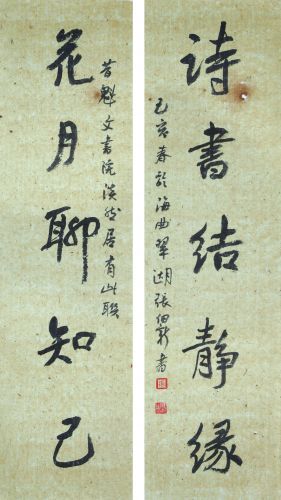 詩書結靜緣
花月聊知己
昔魁文書院淡然居有此聯
己亥春於海曲翠湖張伯新書